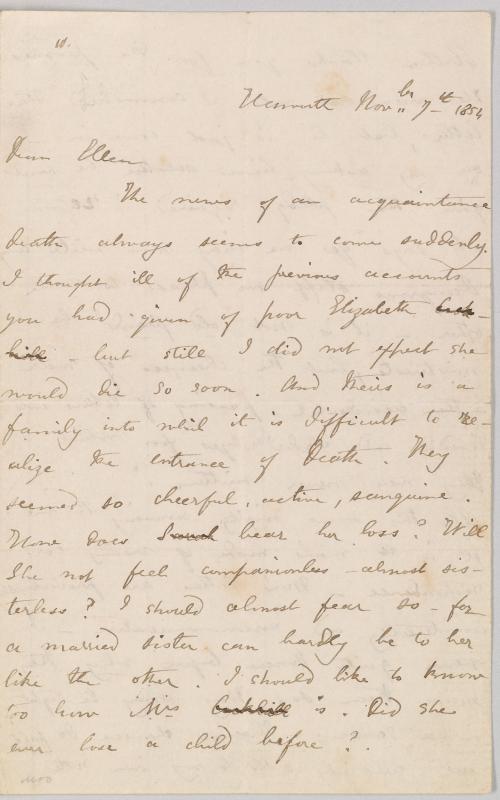 10.
Haworth Nov.br 7th 1854
Dear Ellen
The news of an acquaintance
death always seems to come suddenly.
I thought ill of the previous accounts
you had given of poor Elizabeth Cock-
hill - but still I did not expect she
would die so soon. And theirs is a
family into which it is difficult to re-
alize the entrance of Death. They
seemed so cheerful, active, sanguine.
How does Sarah bear her loss? Will
She not feel companionless - almost sis-
terless? I should almost fear so - for
a married sister can hardly be to her
like the other. I should like to know
too how Mrs Cockhill is. Did she
ever lose a child before?.